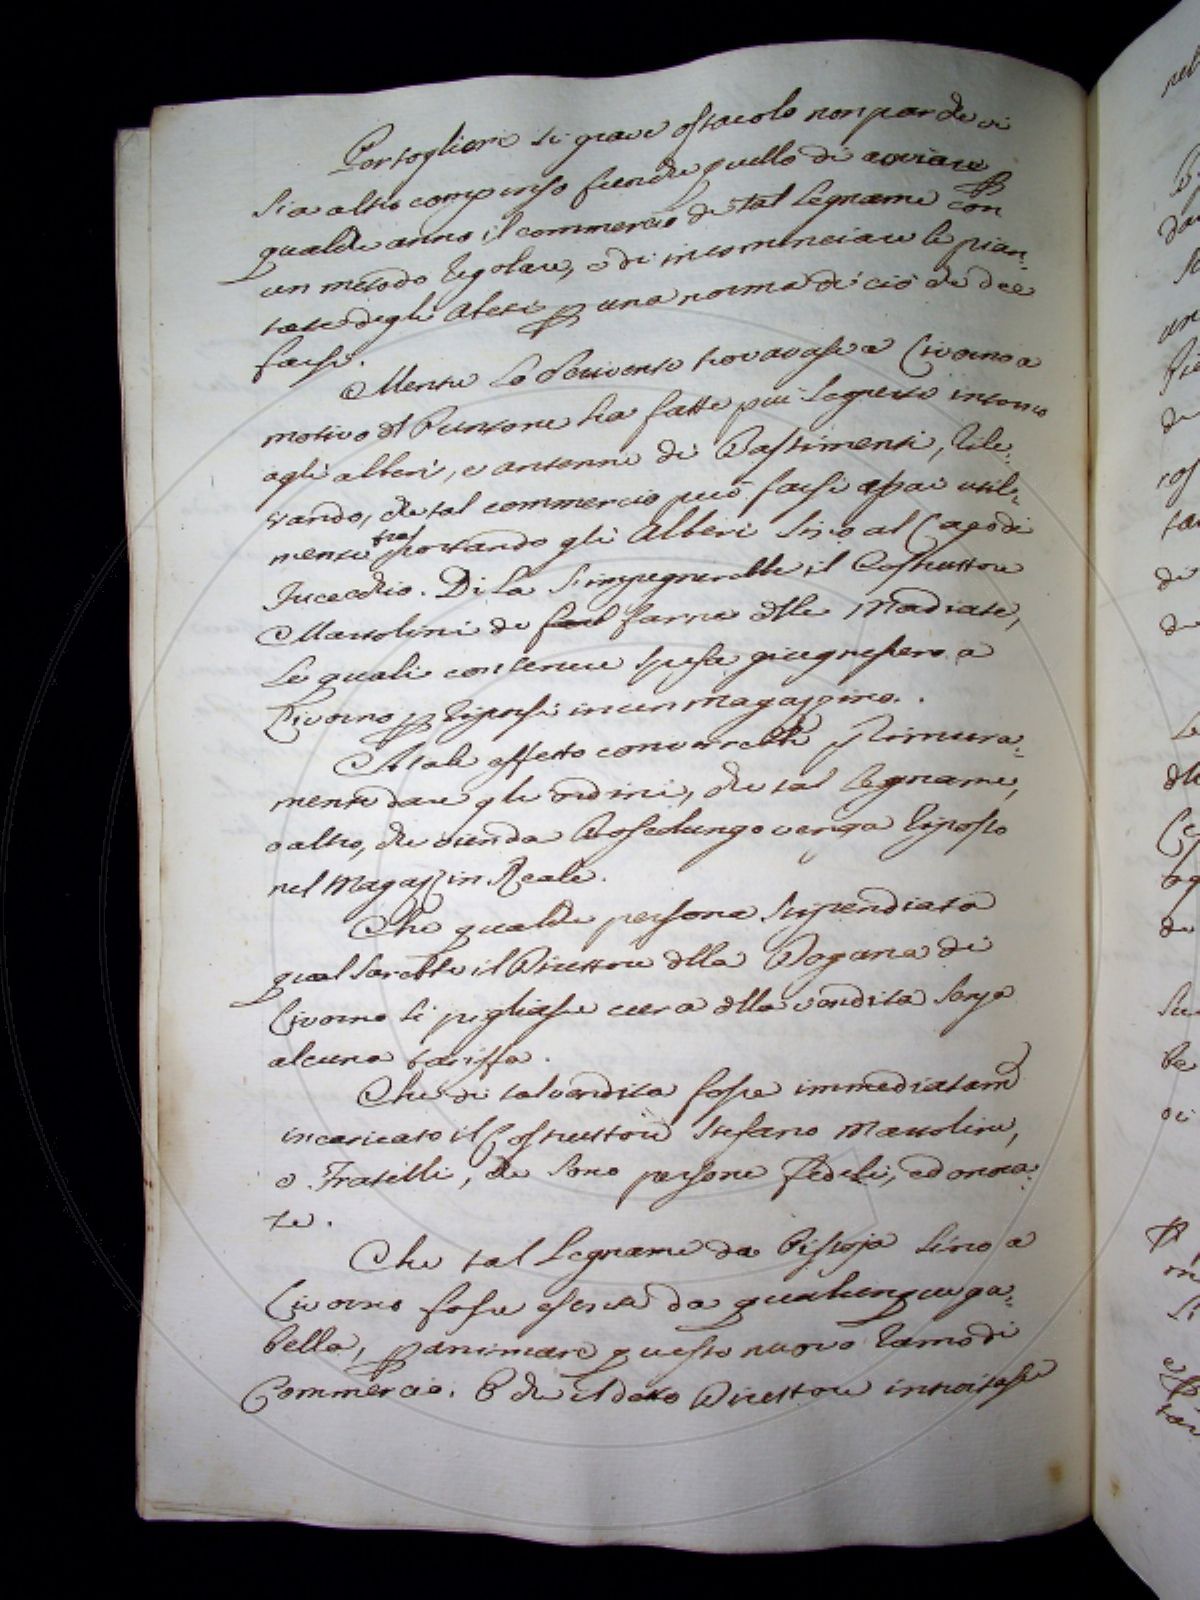 Per togliere sì grave ostacolo non par che vi
sia altro compenso fuorchè quello di avviare p
qualche anno il commercio di tal Legname con
un metodo regolare, e di incominciare le pian-
tate degli Abeti p una norma di ciò che dee
farsi.
Mentre lo scrivente trovavasi a Livorno a
motivo del Puntone ha fatte più ricerche intorno
agli alberi, e antenne di Bastimenti, rile-
vando, che tal commercio può farsi assai util-
mente trasportando gli Alberi sino al Lago di
Fucecchio. Di là s'impegnerebbe il Costruttore
Mazzolini di farne delle Madiate,
le quali con lieve spesa giugnessero a
Livorno p riporsi in un Magazzino.
A tale effetto converrebbe primiera-
mente dare gli ordini, che tal Legname,
o altro, che scenda Boscolungo venga riposto
nel Magazzin Reale.
Che qualche persona stipendiata
qual sarebbe il Direttore della Dogana di
Livorno si pigliasse cura della vendita senza
alcuna tariffa.
Che di tal vendita fosse immediatam
incaricato il Costruttore Stefano Mazzolini,
o Fratelli, che sono persone fedeli, ed onora-
te.
Che tal Legname da Pistoja sino a
Livorno fosse esente da qualunque ga-
bella, p animare questo nuovo ramo di
Commercio. E che il detto Direttore introitasse